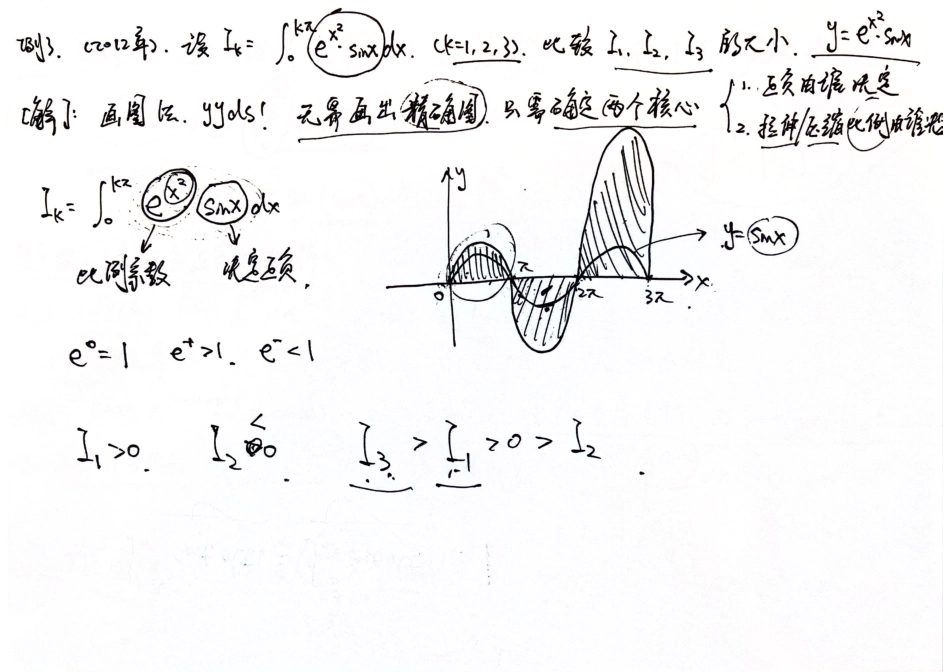 例3. (2012年). 设 I_k = ∫_0^{kπ} e^{x²}·sinx dx. (k=1,2,3). 比较 I_1, I_2, I_3 的大小. y=e^{x²}·sinx
[解]: 画图法. yyds! 无需画出精确图. 只需确定两个核心 { 1. 正负由谁决定
2. 拉伸/压缩比例由谁决定
I_k = ∫_0^{kπ} e^{x²} sinx dx
比例系数 决定正负.
y
y=sinx
0 π 2π 3π x
e^0=1 e^+>1. e^-<1
I_1>0. I_2<0. I_3 > I_1 >0 > I_2.